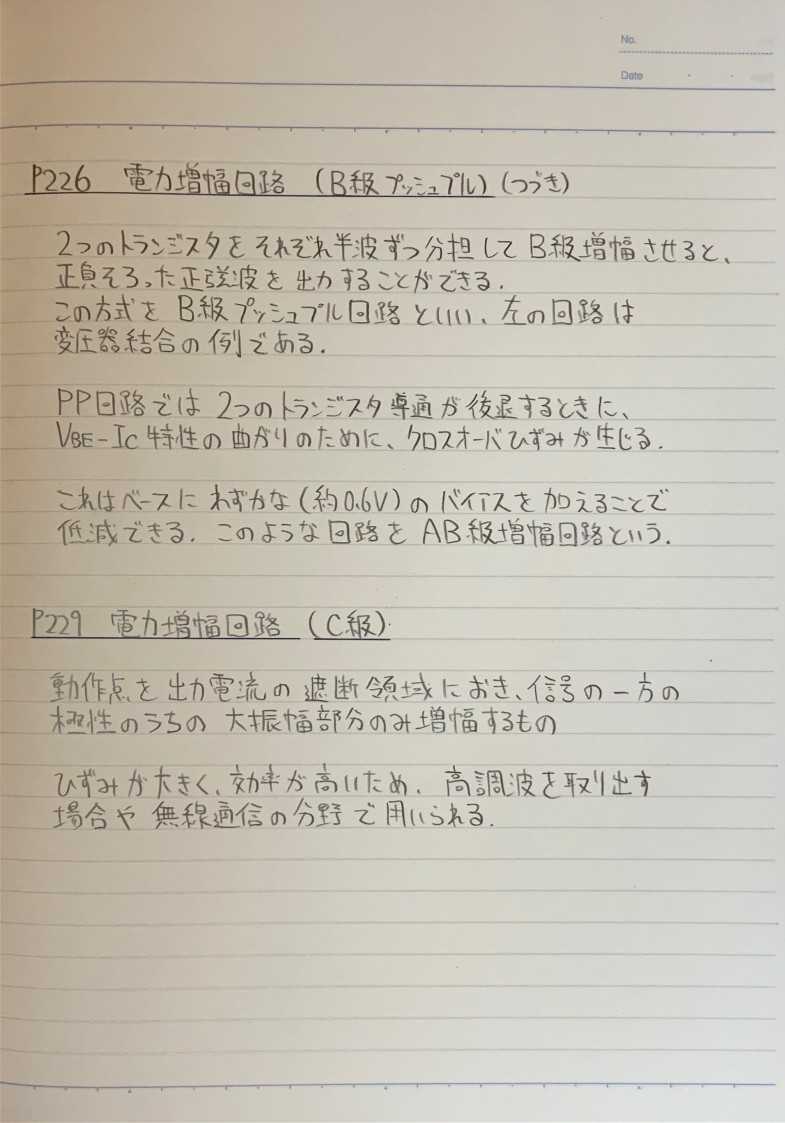 No.
Date
P226 電力増幅回路 (B級プッシュプル) (つづき)
2つのトランジスタをそれぞれ半波ずつ分担してB級増幅させると、
正負そろった正弦波を出力することができる.
この方式をB級プッシュプル回路といい、左の回路は
変圧器結合の例である.
PP回路では2つのトランジスタ導通が後退するときに、
VBE-IC特性の曲がりのために、クロスオーバひずみが生じる.
これはベースにわずかな(約0.6V)のバイアスを加えることで
低減できる. このような回路をAB級増幅回路という.
P229 電力増幅回路 (C級)
動作点を出力電流の遮断領域におき、信号の一方の
極性のうちの大振幅部分のみ増幅するもの
ひずみが大きく、効率が高いため、高調波を取り出す
場合や無線通信の分野で用いられる.